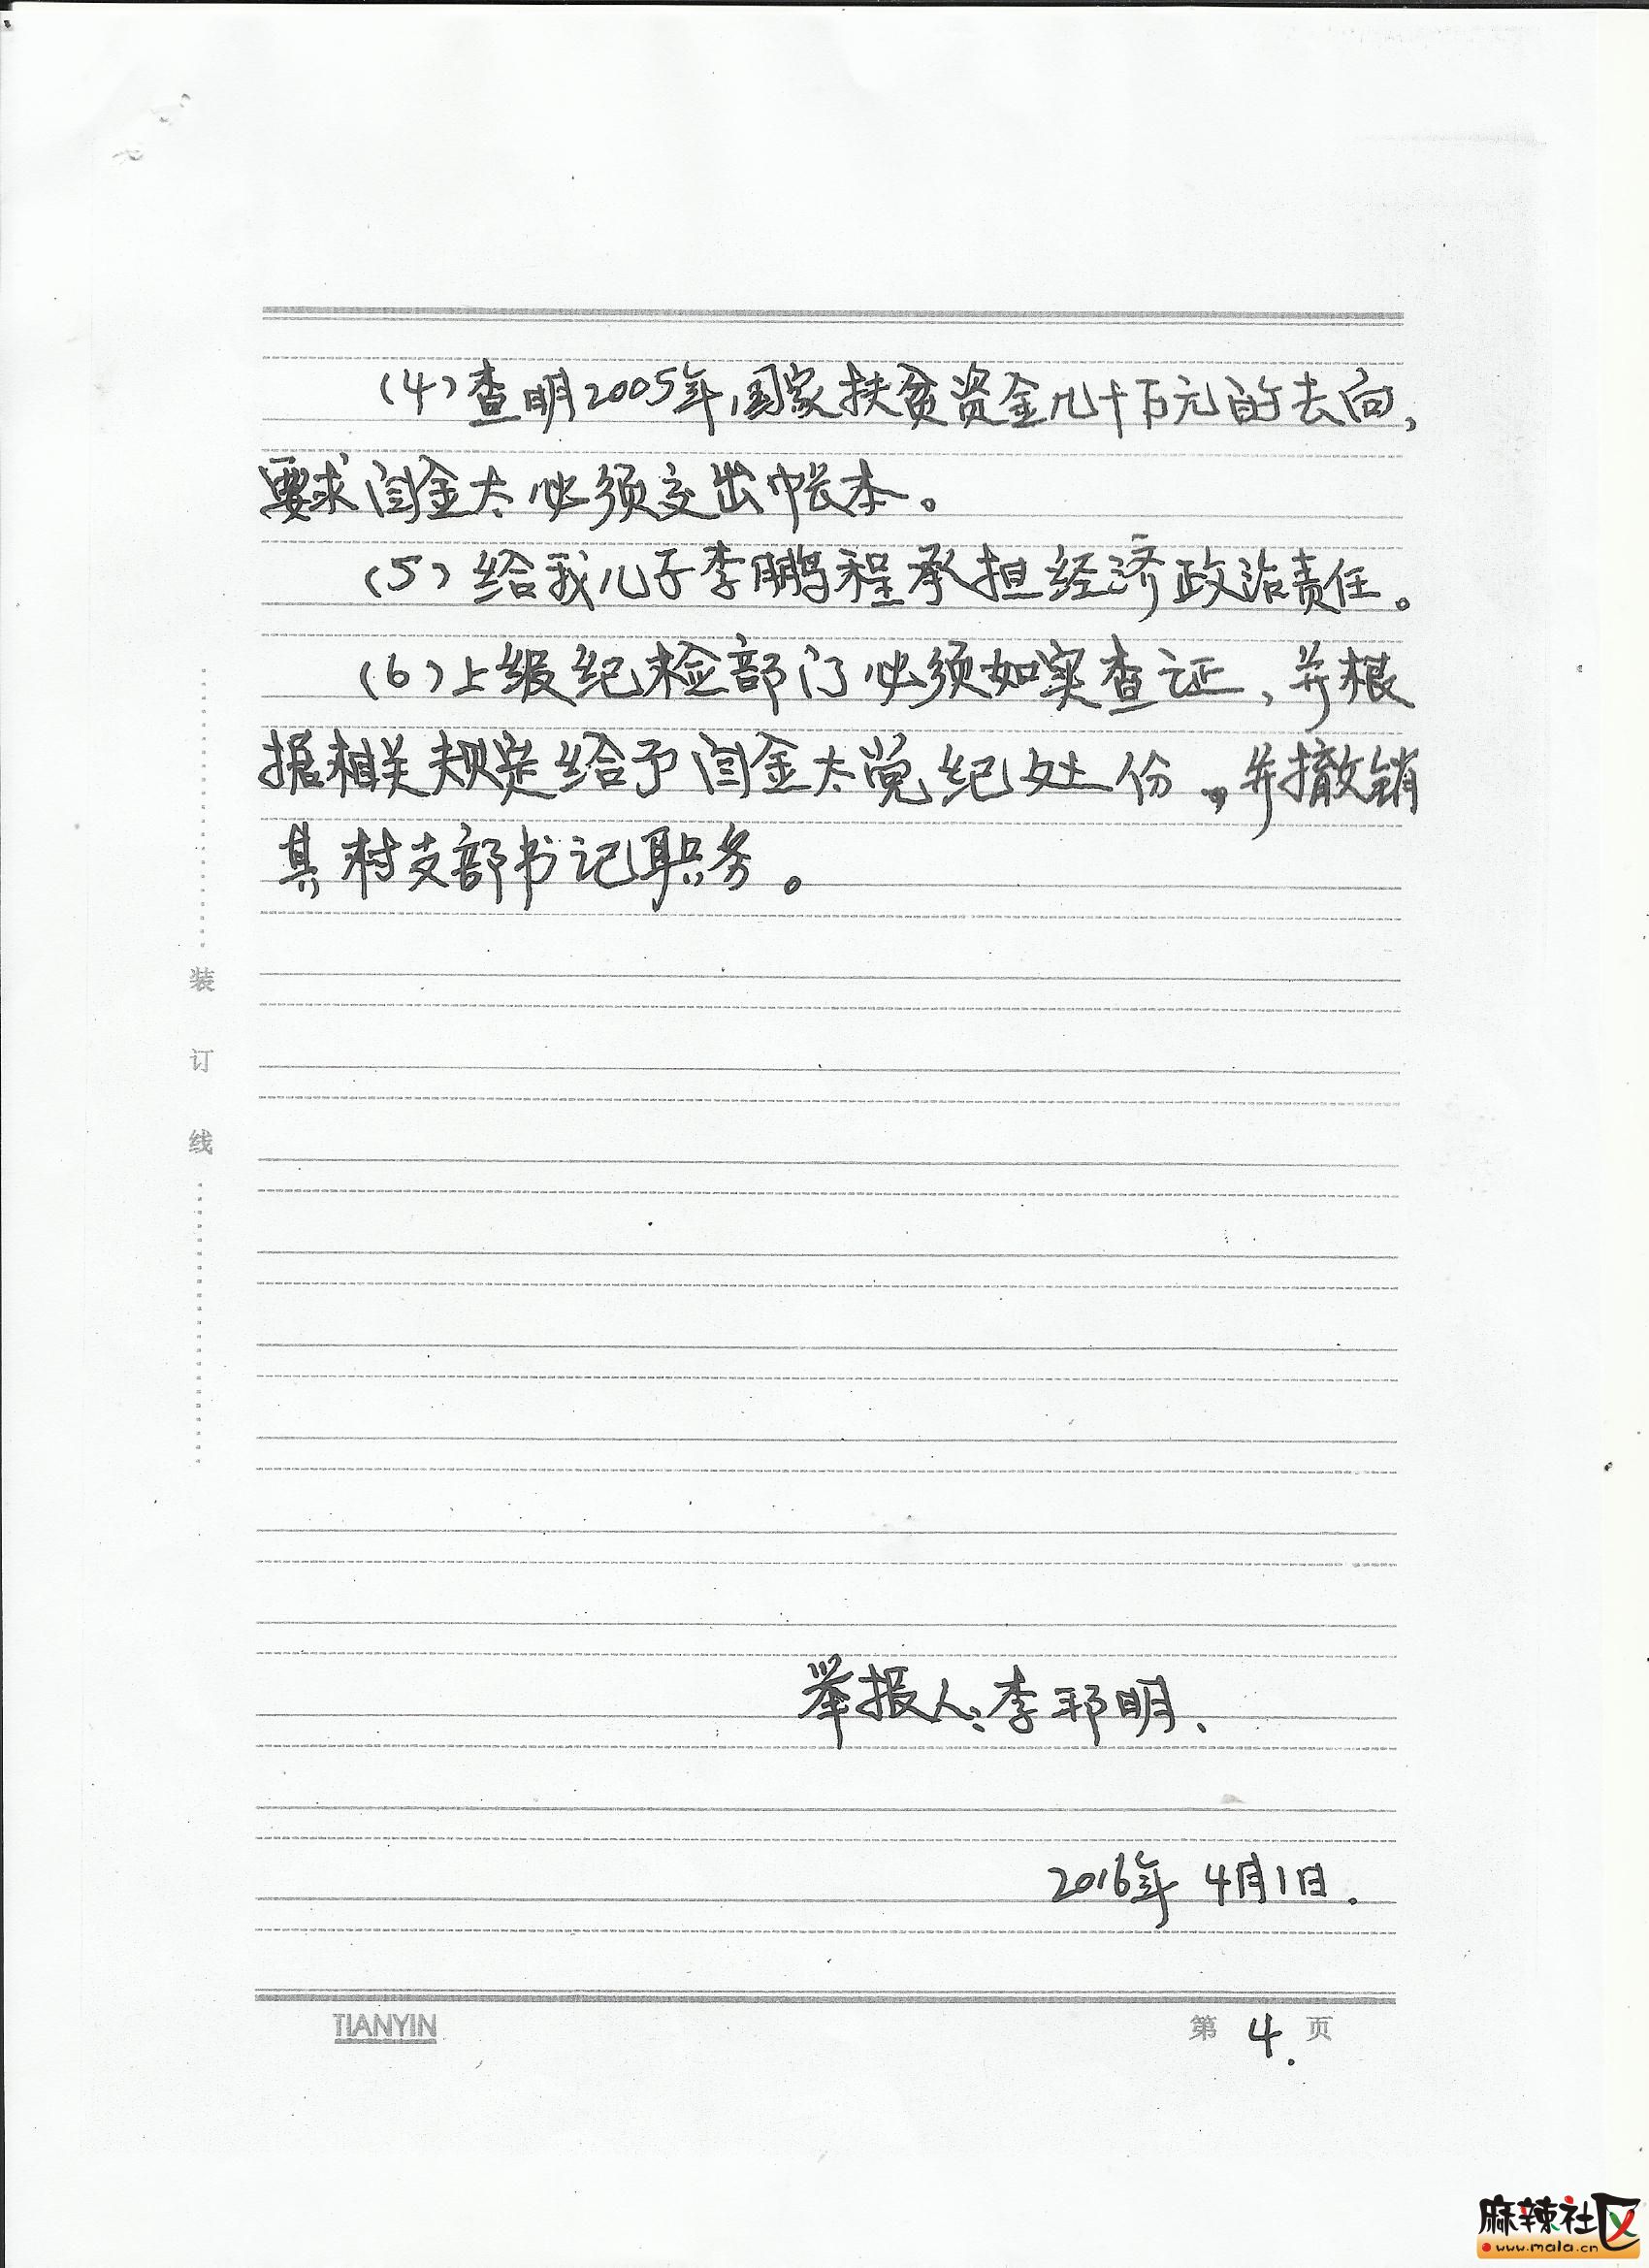 (4)查明2005年,国家扶贫资金几十万元的去向,
要求闫金太必须交出帐本。
(5)给我儿子李鹏程承担经济政治责任。
(6)上级纪检部门必须如实查证,并根
据相关规定给予闫金太党纪处份,并撤销
其村支部书记职务。
装
订
线
举报人:李邛明.
2016年 4月1日.
TIANYIN
第 4. 页
麻辣社区
www.mala.cn